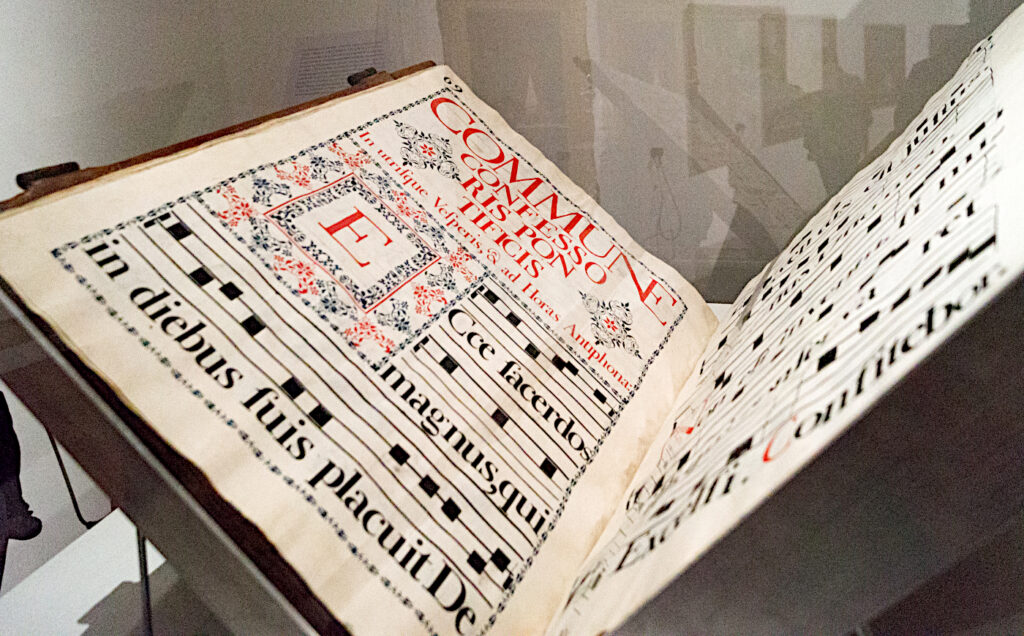 COMMUNE
CONFESSO
RIS PON
TIFICIS
In utriſque Veſperis, & ad Horas Antiphona.
E
Cce ſacerdos
magnus, qui
in diebus ſuis placuit De
Confitebor
Excelſi.